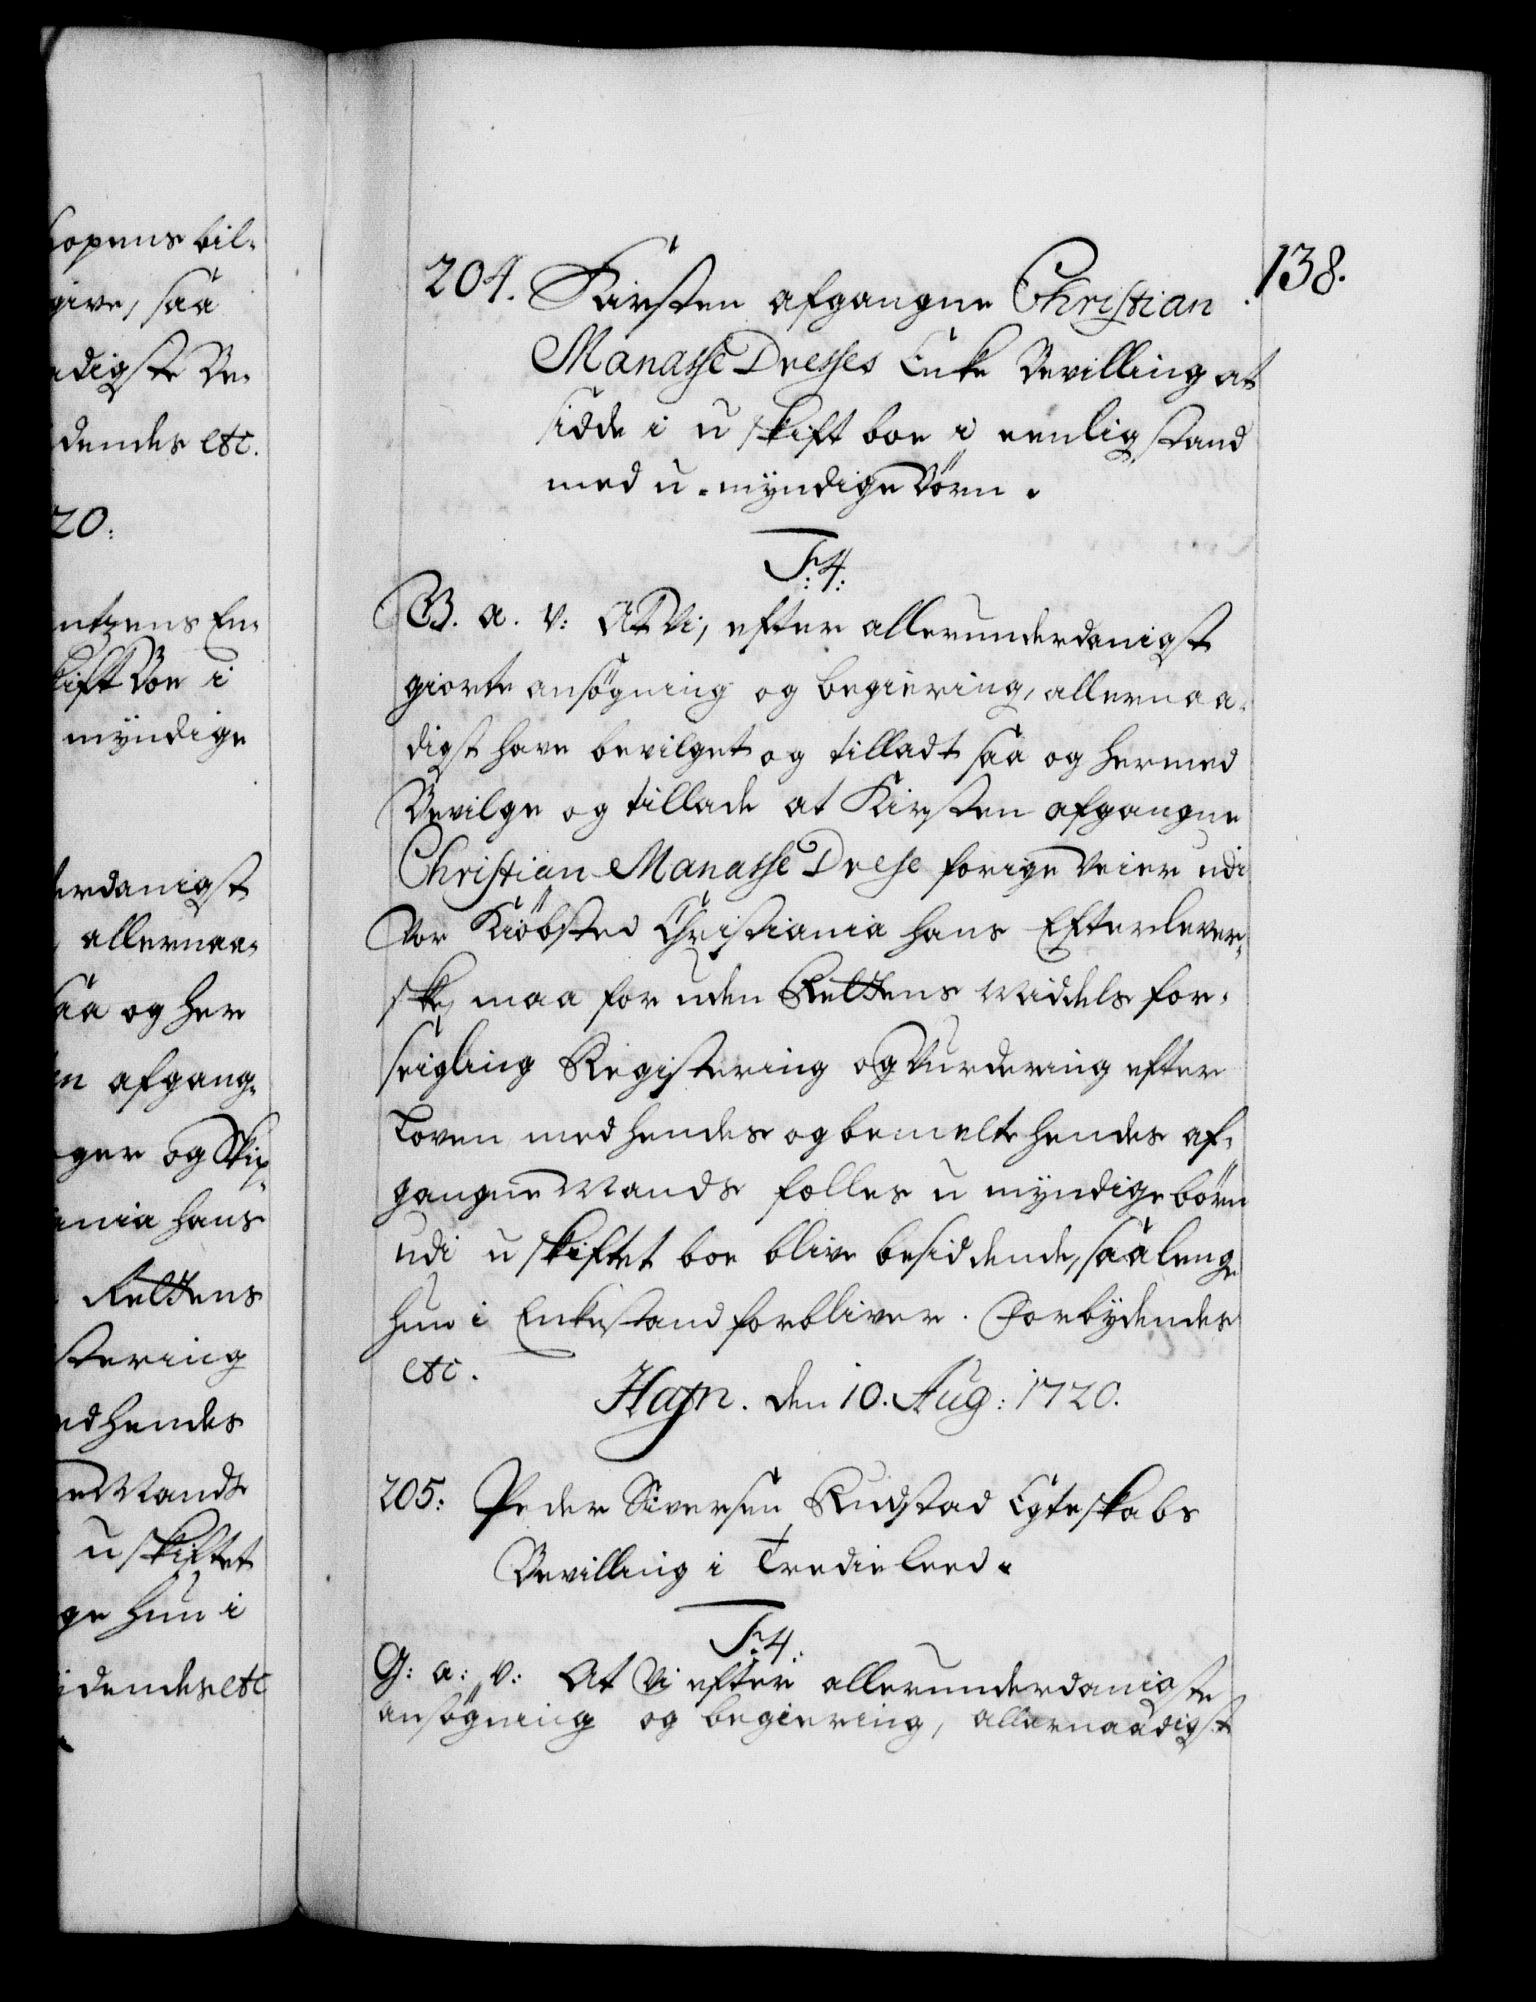 hopens bil-
give, saa
adigste Be-
dendes etc.
20:
ntzens En-
kift Boe i
myndige
derdanigst
allernaa-
saa og her
en afgang-
ger og Skip-
ania hans
Rettens
stering
ed hendes
e Mands
u skiftet
ge hun i
idendes etc
138.
204. Kirsten afgangne Christian
Manasse Dresses Enke Bevilling at
sidde i u skift boe i eenlig stand
med u-myndige Børn.
F:4:
G. a. v: At Vi, efter allerunderdanigst
giorte ansøgning og begiering, allernaa-
digst have bevilget og tilladt saa og hermed
Bevilge og tillade at Kirsten afgangne
Christian Manasse Drese forige Veier udi
Vor Kiøbsted Christiania hans Efterlever-
ske, maa for uden Rettens Middels for-
seigling Registering og Vurdering efter
Loven med hendes og bemelte hendes af-
gangne Mands felles u myndige børn
udi u skiftet boe blive besiddende, saa lenge
hun i Enkestand forbliver. Forbydendes
etc.
Hafn. den 10. Aug: 1720.
205: Peder Siversen Rudstad Egteskabs
Bevilling i Tredie leed.
F:4:
G: a: v: At Vi efter allerunderdanigste
ansøgning og begiering, allernaadigst